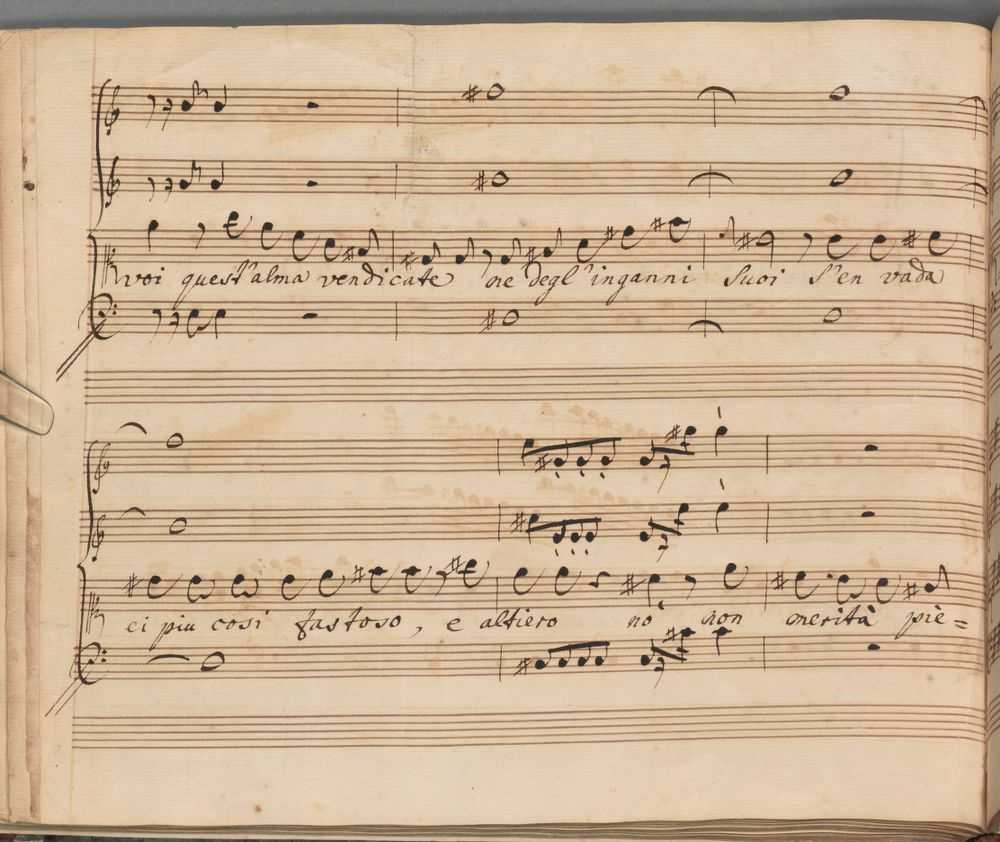 voi quest'alma vendicate ne degl'inganni suoi s'en vada
ei piu cosi fastoso, e altiero nò non merità piè=